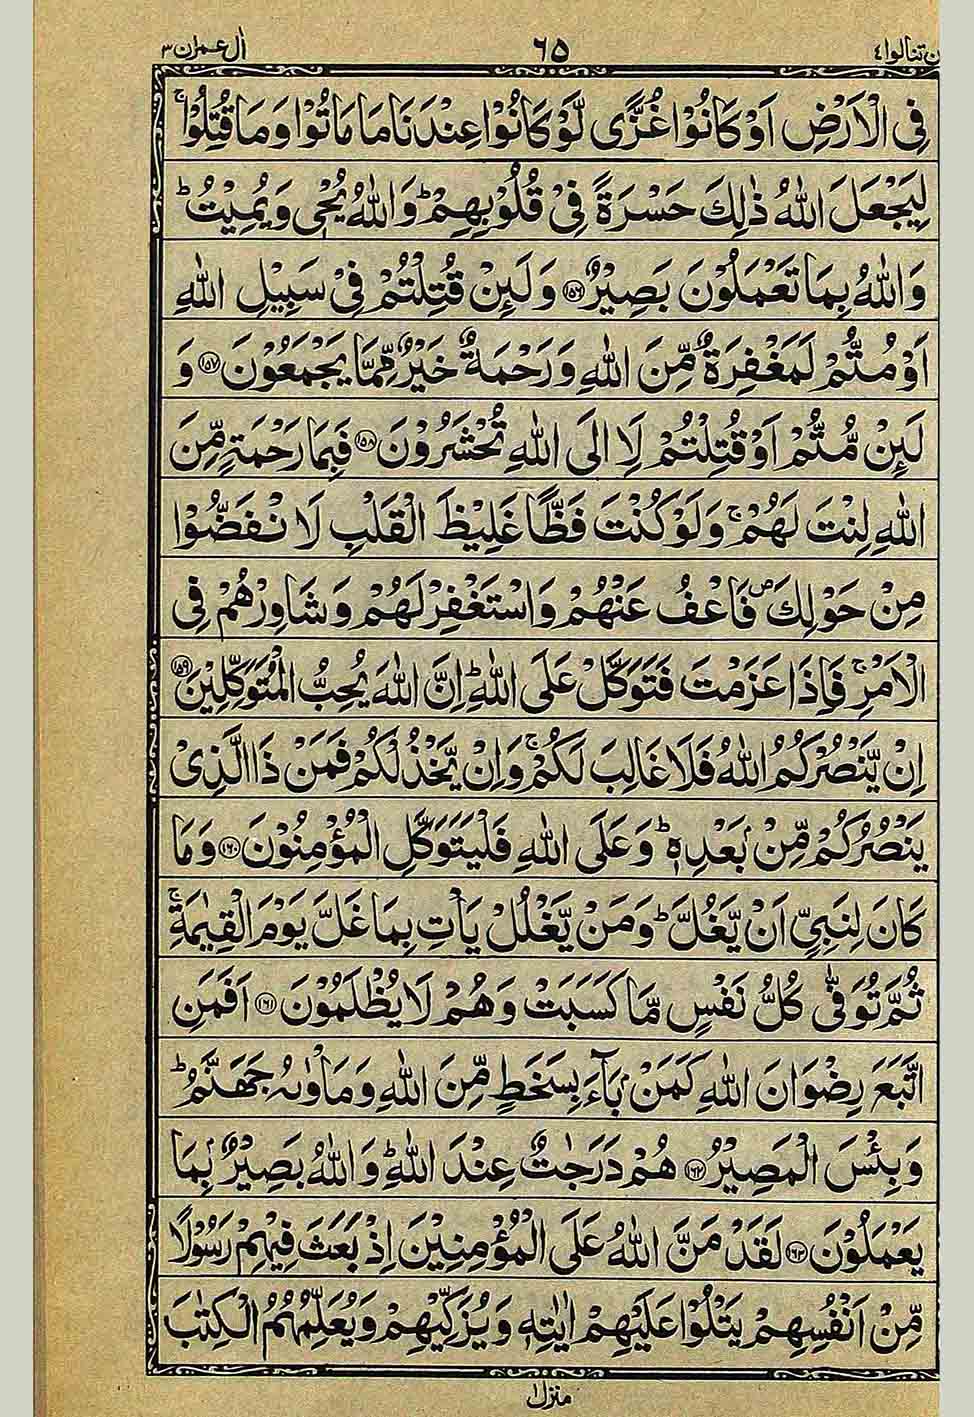 اٰل عمران ٣ ٦٥ ن تنالوا ٤
فِى الْاَرْضِ اَوْ كَانُوْا غُزًّى لَّوْ كَانُوْا عِنْدَنَا مَا مَاتُوْا وَمَا قُتِلُوْا ۚ
لِيَجْعَلَ اللّٰهُ ذٰلِكَ حَسْرَةً فِىْ قُلُوْبِهِمْ ؕ وَاللّٰهُ يُحْىٖ وَيُمِيْتُ ؕ
وَاللّٰهُ بِمَا تَعْمَلُوْنَ بَصِيْرٌ ﴿۱۵۶﴾ وَلَئِنْ قُتِلْتُمْ فِىْ سَبِيْلِ اللّٰهِ
اَوْ مُتُّمْ لَمَغْفِرَةٌ مِّنَ اللّٰهِ وَرَحْمَةٌ خَيْرٌ مِّمَّا يَجْمَعُوْنَ ﴿۱۵۷﴾ وَ
لَئِنْ مُّتُّمْ اَوْ قُتِلْتُمْ لَا۟اِلَى اللّٰهِ تُحْشَرُوْنَ ﴿۱۵۸﴾ فَبِمَا رَحْمَةٍ مِّنَ
اللّٰهِ لِنْتَ لَهُمْ ۚ وَلَوْ كُنْتَ فَظًّا غَلِيْظَ الْقَلْبِ لَا نْفَضُّوْا
مِنْ حَوْلِكَ ۪ فَاعْفُ عَنْهُمْ وَاسْتَغْفِرْ لَهُمْ وَشَاوِرْهُمْ فِى
الْاَمْرِ ۚ فَاِذَا عَزَمْتَ فَتَوَكَّلْ عَلَى اللّٰهِ ؕ اِنَّ اللّٰهَ يُحِبُّ الْمُتَوَكِّلِيْنَ ﴿۱۵۹﴾
اِنْ يَّنْصُرْكُمُ اللّٰهُ فَلَا غَالِبَ لَكُمْ ۚ وَاِنْ يَّخْذُلْكُمْ فَمَنْ ذَا الَّذِىْ
يَنْصُرُكُمْ مِّنْۢ بَعْدِهٖ ؕ وَعَلَى اللّٰهِ فَلْيَتَوَكَّلِ الْمُؤْمِنُوْنَ ﴿۱۶۰﴾ وَمَا
كَانَ لِنَبِىٍّ اَنْ يَّغُلَّ ؕ وَمَنْ يَّغْلُلْ يَاْتِ بِمَا غَلَّ يَوْمَ الْقِيٰمَةِ ۚ
ثُمَّ تُوَفّٰى كُلُّ نَفْسٍ مَّا كَسَبَتْ وَهُمْ لَا يُظْلَمُوْنَ ﴿۱۶۱﴾ اَفَمَنِ
اتَّبَعَ رِضْوَانَ اللّٰهِ كَمَنْۢ بَآءَ بِسَخَطٍ مِّنَ اللّٰهِ وَمَاْوٰىهُ جَهَنَّمُ ؕ
وَبِئْسَ الْمَصِيْرُ ﴿۱۶۲﴾ هُمْ دَرَجٰتٌ عِنْدَ اللّٰهِ ؕ وَاللّٰهُ بَصِيْرٌۢ بِمَا
يَعْمَلُوْنَ ﴿۱۶۳﴾ لَقَدْ مَنَّ اللّٰهُ عَلَى الْمُؤْمِنِيْنَ اِذْ بَعَثَ فِيْهِمْ رَسُوْلًا
مِّنْ اَنْفُسِهِمْ يَتْلُوْا عَلَيْهِمْ اٰيٰتِهٖ وَيُزَكِّيْهِمْ وَيُعَلِّمُهُمُ الْكِتٰبَ
منزل ١